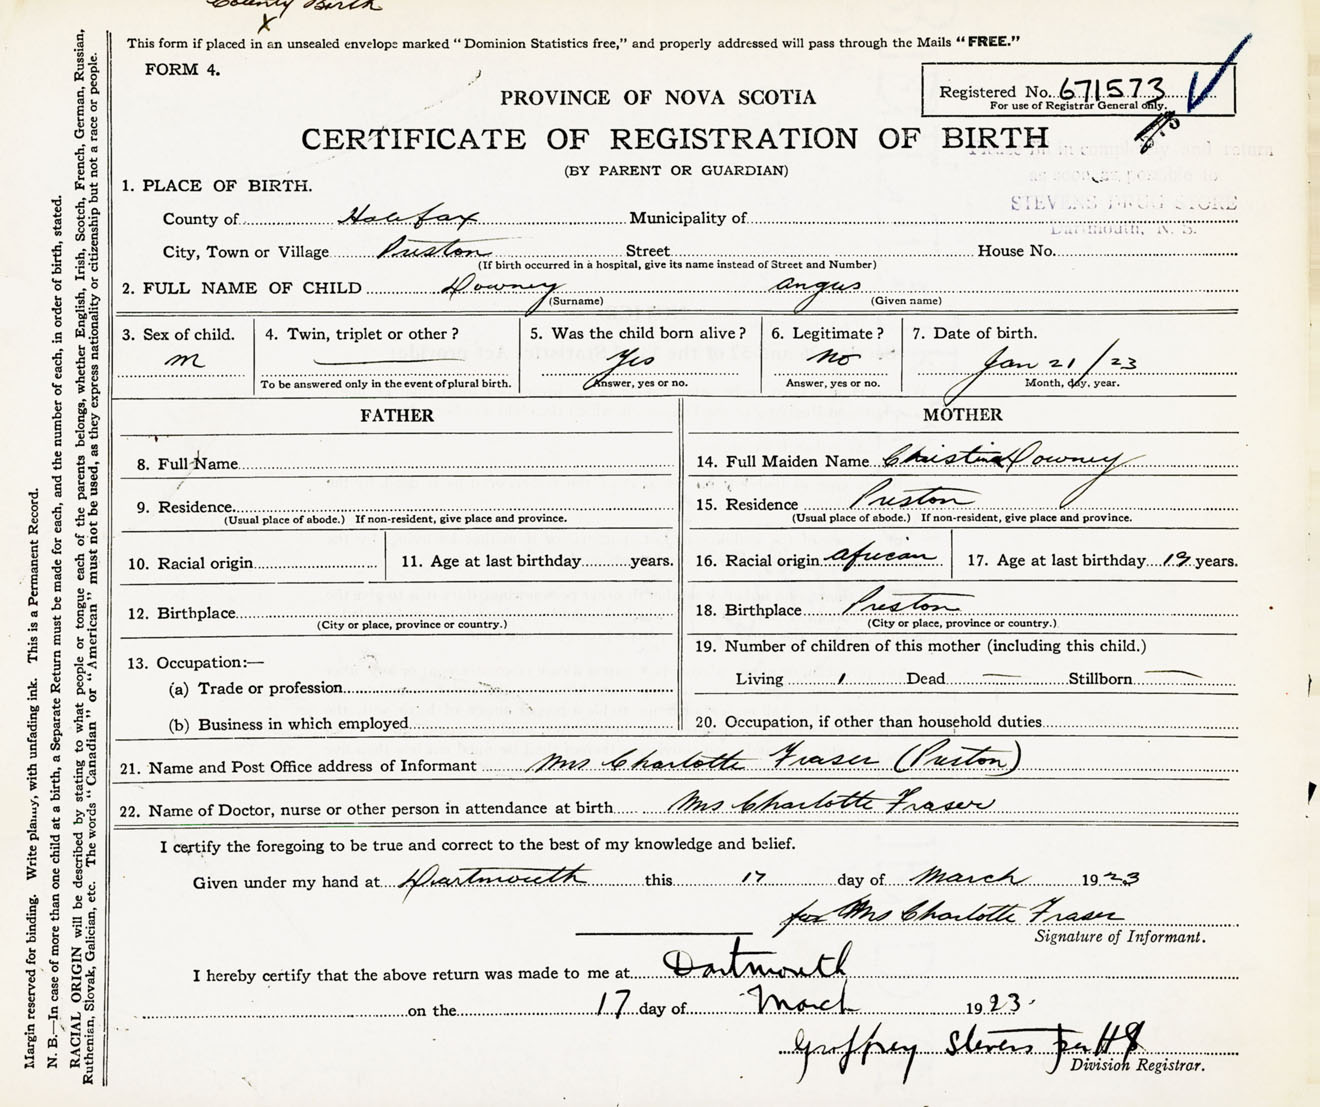 County Birth
X
This form if placed in an unsealed envelope marked "Dominion Statistics free," and properly addressed will pass through the Mails "FREE."
FORM 4.
Registered No. 671573
For use of Registrar General only.
PROVINCE OF NOVA SCOTIA
CERTIFICATE OF REGISTRATION OF BIRTH
(BY PARENT OR GUARDIAN)
STEVENS DRUG STORE
Dartmouth, N. S.
1. PLACE OF BIRTH.
County of Halifax Municipality of
City, Town or Village Preston Street House No.
(If birth occurred in a hospital, give its name instead of Street and Number)
2. FULL NAME OF CHILD Downey Angus
(Surname) (Given name)
3. Sex of child. 4. Twin, triplet or other? 5. Was the child born alive? 6. Legitimate? 7. Date of birth.
M Yes No Jan 21/23
To be answered only in the event of plural birth. Answer, yes or no. Answer, yes or no. Month, day, year.
FATHER MOTHER
8. Full Name 14. Full Maiden Name Christina Downey
9. Residence 15. Residence Preston
(Usual place of abode.) If non-resident, give place and province. (Usual place of abode.) If non-resident, give place and province.
10. Racial origin 11. Age at last birthday years. 16. Racial origin African 17. Age at last birthday 19 years.
12. Birthplace 18. Birthplace Preston
(City or place, province or country.) (City or place, province or country.)
13. Occupation:— 19. Number of children of this mother (including this child.)
(a) Trade or profession Living 1 Dead — Stillborn —
(b) Business in which employed 20. Occupation, if other than household duties
21. Name and Post Office address of Informant Mrs Charlotte Fraser (Preston)
22. Name of Doctor, nurse or other person in attendance at birth Mrs Charlotte Fraser
I certify the foregoing to be true and correct to the best of my knowledge and belief.
Given under my hand at Dartmouth this 17 day of March 1923
for Mrs Charlotte Fraser
Signature of Informant.
I hereby certify that the above return was made to me at Dartmouth
on the 17 day of March 1923.
Geoffrey Stevens per HS
Division Registrar.
Margin reserved for binding. Write plainly, with unfading ink. This is a Permanent Record.
N. B.—In case of more than one child at a birth, a Separate Return must be made for each, and the number of each, in order of birth, stated.
RACIAL ORIGIN will be described by stating to what people or tongue each of the parents belongs, whether English, Irish, Scotch, French, German, Russian,
Ruthenian, Slovak, Galician, etc. The words "Canadian" or "American" must not be used, as they express nationality or citizenship but not a race or people.